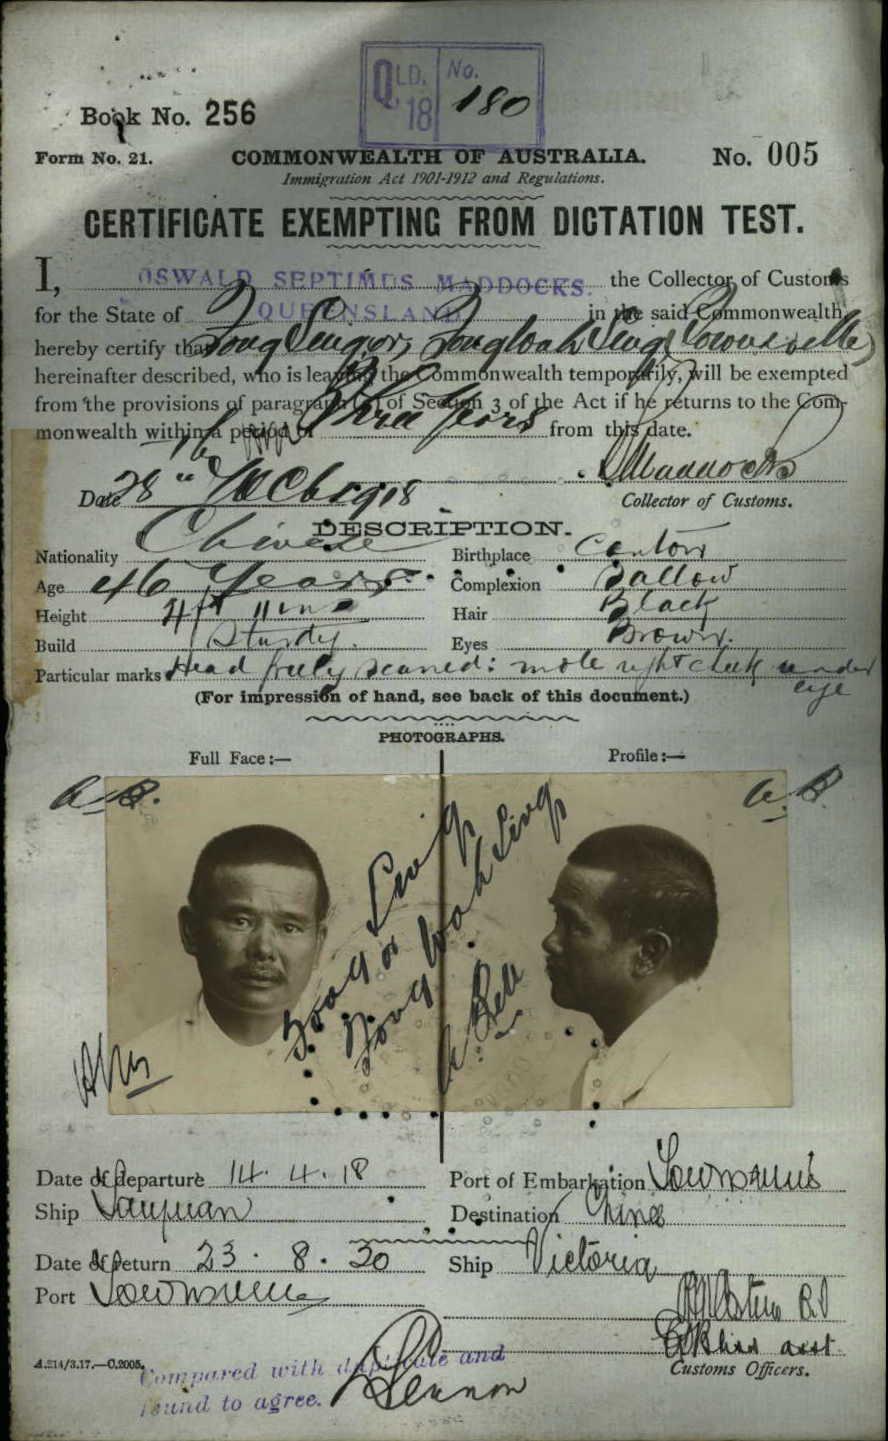 QLD. No.
18 180
Book No. 256
Form No. 21. COMMONWEALTH OF AUSTRALIA. No. 005
Immigration Act 1901-1912 and Regulations.
CERTIFICATE EXEMPTING FROM DICTATION TEST.
I, OSWALD SEPTIMUS MADDOCKS. the Collector of Customs
for the State of QUEENSLAND in the said Commonwealth,
hereby certify that Fong Sing or Fong Wah Sing (Townsville)
hereinafter described, who is leaving the Commonwealth temporarily, will be exempted
from the provisions of paragraph of Section 3 of the Act if he returns to the Com-
monwealth within a period of Three Years from this date.
Date 28th March 1918 Maddocks
Collector of Customs.
DESCRIPTION.
Nationality Chinese Birthplace Canton
Age 46 Years. Complexion Sallow
Height Hair Black
Build Sturdy. Eyes Brown.
Particular marks Head freely scarred: mole right cheek under
eye
(For impression of hand, see back of this document.)
PHOTOGRAPHS.
Full Face:— Profile:—
A.B. A.B.
Fong Sing
or
Fong Wah Sing
A. Bell
Date of departure 14. 4. 18 Port of Embarkation Townsville
Ship Taiyuan Destination China
Date of return 23. 8. 20 Ship Victoria
Port Townsville
Customs Officers.
A.214/3.17.—C.2005.
Compared with duplicate and
found to agree. Lennon